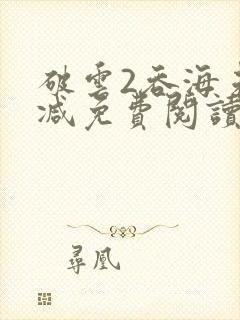 破雲2吞海未
減免費閱讀
尋凰